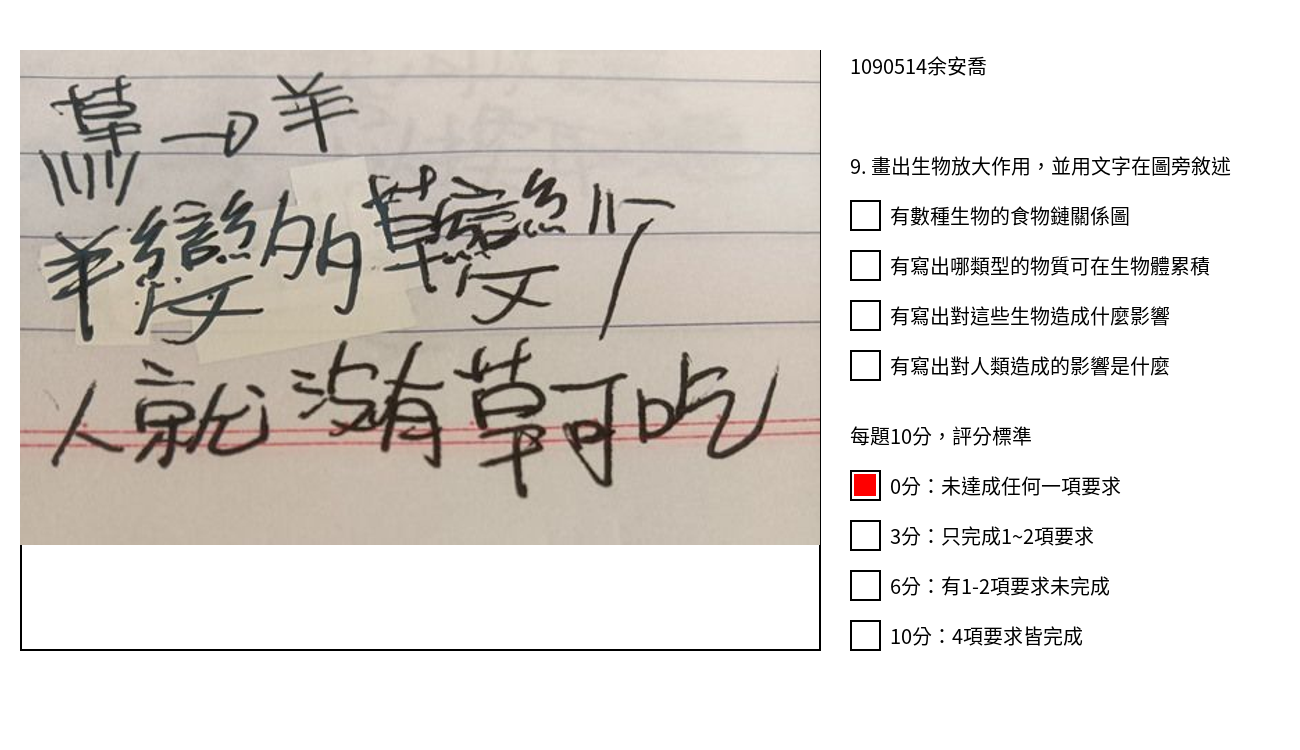 草→羊
羊變多草變少
人就沒有草可吃
1090514余安喬
9. 畫出生物放大作用，並用文字在圖旁敘述
有數種生物的食物鏈關係圖
有寫出哪類型的物質可在生物體累積
有寫出對這些生物造成什麼影響
有寫出對人類造成的影響是什麼
每題10分，評分標準
0分：未達成任何一項要求
3分：只完成1~2項要求
6分：有1-2項要求未完成
10分：4項要求皆完成